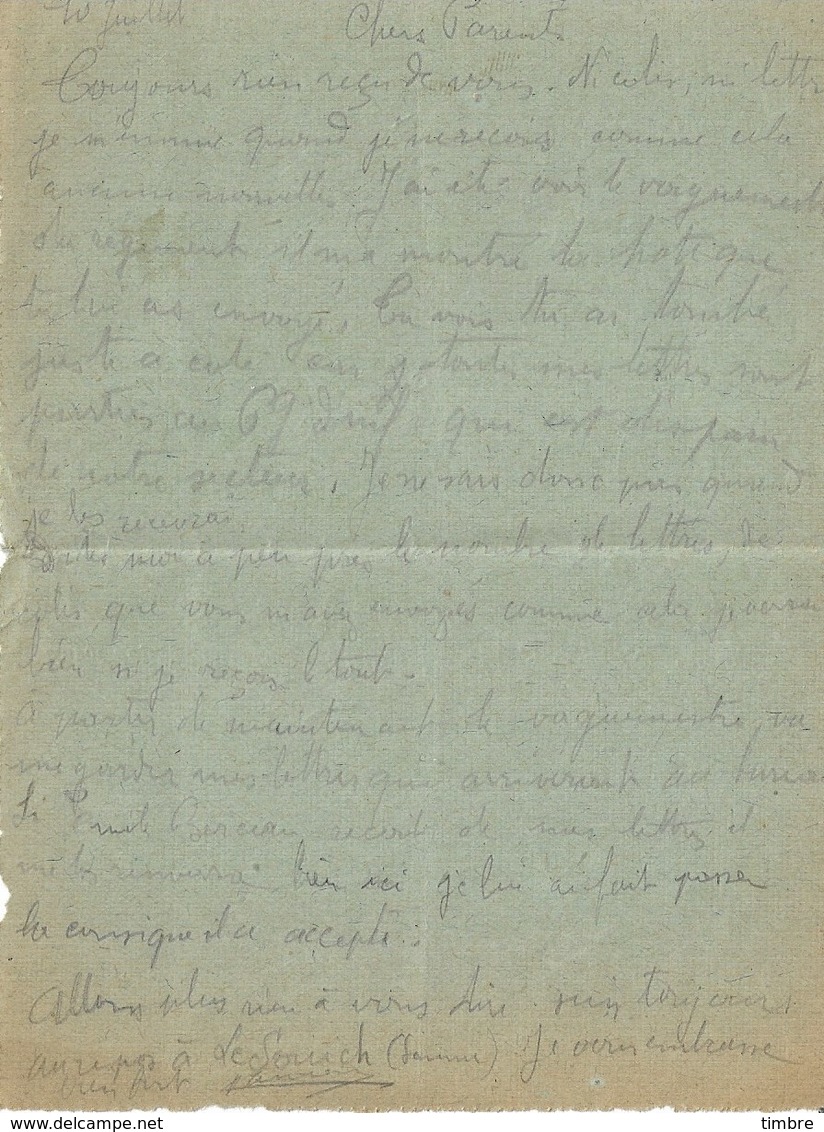 10 Juillet
Chers Parents
Toujours rien reçu de vous. Ni colis, ni lettre
je m'ennuie quand je ne reçois comme cela
aucune nouvelles. J'ai été voir le vaguemestre
du régiment il m'a montré la note que
tu lui as envoyé, tu vois tu as tombé
juste a coté car toutes mes lettres sont
parties au qui est disparu
de notre secteur. Je ne sais donc pas quand
je les recevrai.
Dites moi à peu près le nombre de lettres, de
colis que vous m'avez envoyés comme cela je verrai
bien si je reçois le tout.
A partir de maintenant le vaguemestre va
me garder mes lettres qui arriveront au bureau
Si Emile reçoit de mes lettres il
me les renverra bien ici je lui ai fait passer
la consigne il a accepté.
Allons plus rien à vous dire suis toujours
au repos à Le Souich (Somme) Je vous embrasse
bien fort
www.delcampe.net
timbre